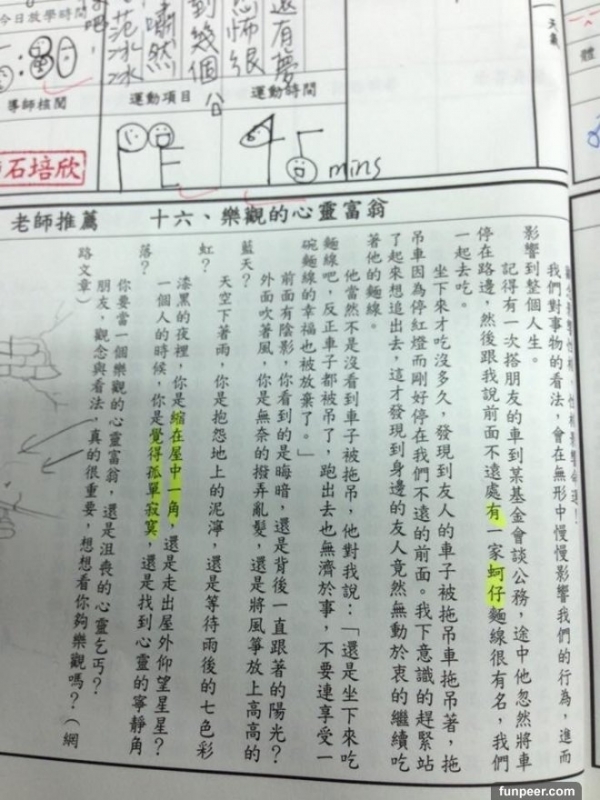 今日放學時間
5:30
范冰冰
嘯然
到幾個
恐怖很
還有夢
天氣
體
導師核閱
運動項目
運動時間
石培欣
PE
45 mins
老師推薦
十六、樂觀的心靈富翁
我們對事物的看法，會在無形中慢慢影響我們的行為，進而
影響到整個人生。
記得有一次搭朋友的車到某基金會談公務，途中他忽然將車
停在路邊，然後跟我說前面不遠處有一家蚵仔麵線很有名，我們
一起去吃。
坐下來才吃沒多久，發現到友人的車子被拖吊車拖吊著，拖
吊車因為停紅燈而剛好停在我們不遠的前面。我下意識的趕緊站
了起來想追出去，這才發現到身邊的友人竟然無動於衷的繼續吃
著他的麵線。
他當然不是沒看到車子被拖吊，他對我說：「還是坐下來吃
麵線吧，反正車子都被吊了，跑出去也無濟於事，不要連享受一
碗麵線的幸福也被放棄了。」
前面有陰影，你看到的是晦暗，還是背後一直跟著的陽光？
外面吹著風，你是無奈的撥弄亂髮，還是將風箏放上高高的
藍天？
天空下著雨，你是抱怨地上的泥濘，還是等待雨後的七色彩
虹？
漆黑的夜裡，你是縮在屋中一角，還是走出屋外仰望星星？
一個人的時候，你是覺得孤單寂寞，還是找到心靈的寧靜角
落？
你要當一個樂觀的心靈富翁，還是沮喪的心靈乞丐？
朋友，觀念與看法，真的很重要，想想看你夠樂觀嗎？（網
路文章）
funpeer.com